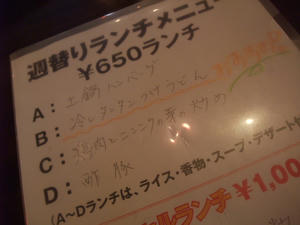 週替りランチメニュー
¥650ランチ
A: 土鍋ハンバーグ
B: 冷しタンタンつけうどん おすすめ!!
C: 鶏肉とニンニクの芽の炒め
D: 酢豚
(A~Dランチは、ライス・香物・スープ・デザート付
ルランチ ¥1,00